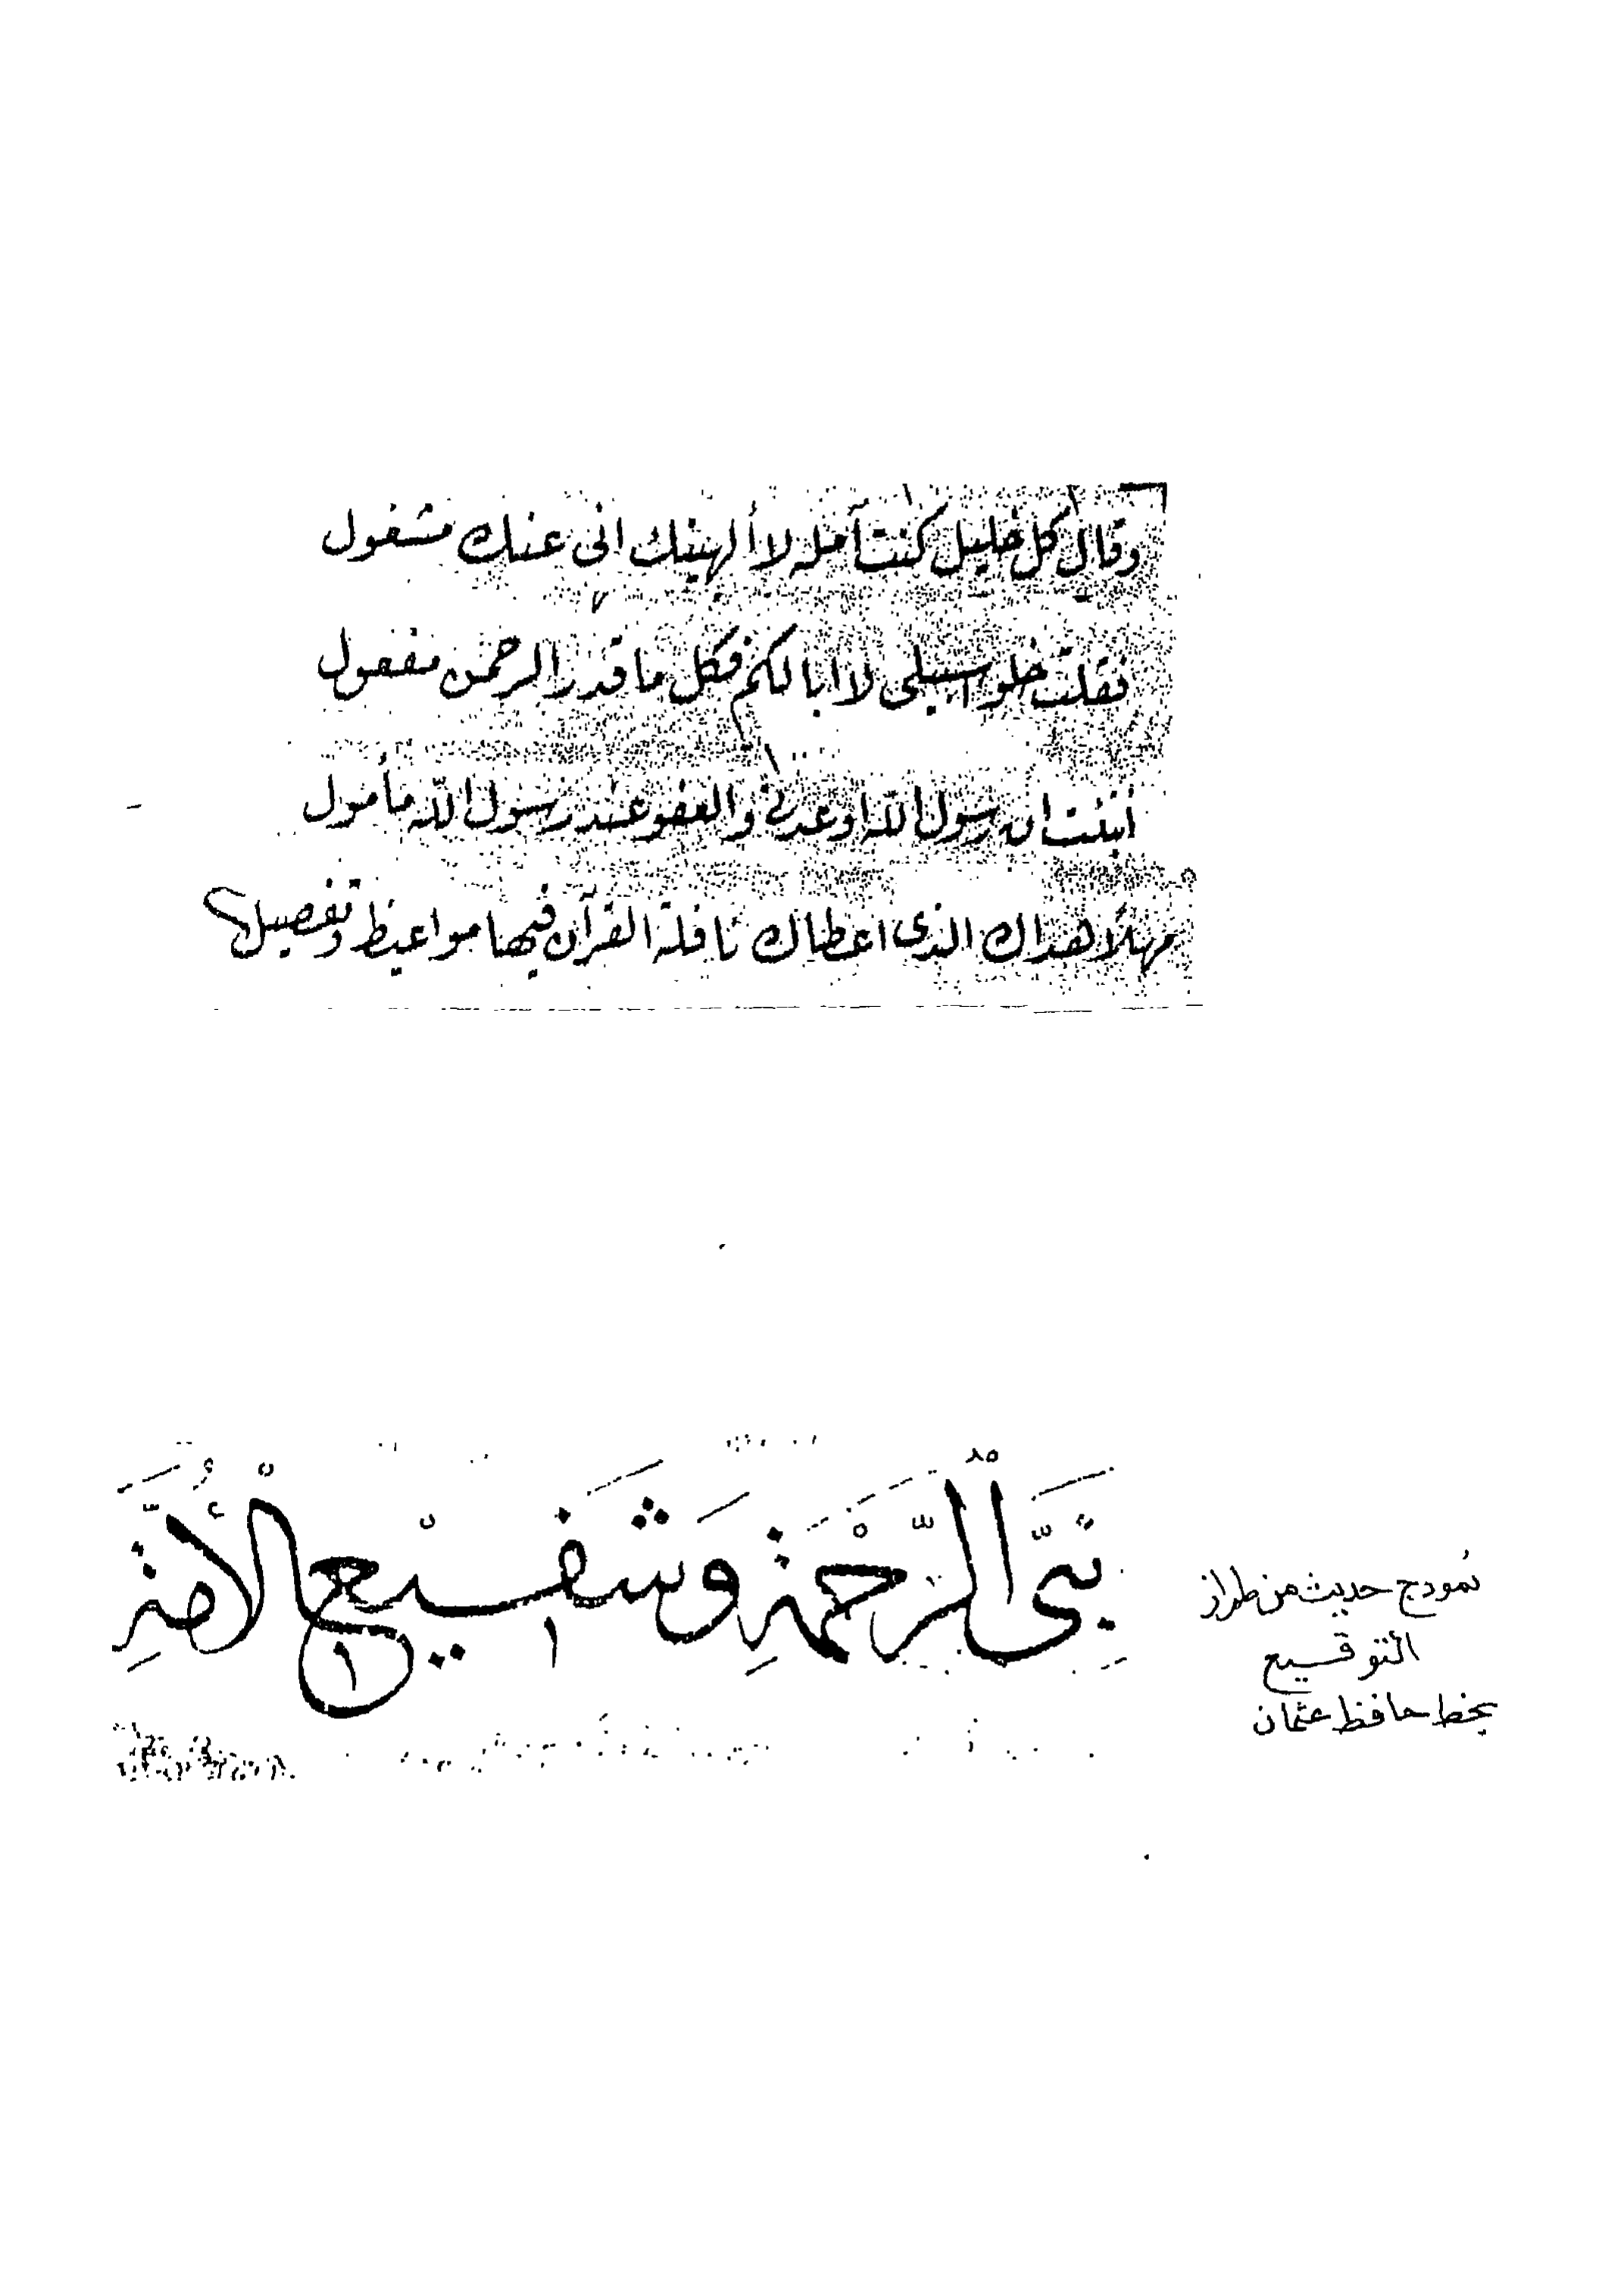 وقال كل خليل كنت آمله لا ألهينك انى عنك مشغول
فقلت خلوا سبيلى لا ابا لكم فكل ما قدر الرحمن مفعول
أنبئت ان رسول الله اوعدنى والعفو عند رسول الله مأمول
مهلاً هداك الذى اعطاك نافلة القرآن فيها مواعيظ وتفصيل
نَبِيِّ الرَّحْمَةِ وَشَفِيْعِ الْأُمَّةِ
نموذج حديث من طراز
التوقيع
بخط حافظ عثمان